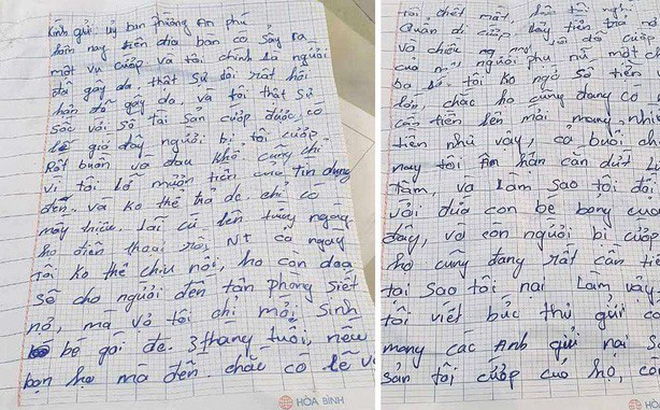 Kính gửi, uỷ ban phường An phú
hôm nay trên địa bàn có sảy ra
một vụ cướp và tôi chính là người
đã gây da. thật sự tôi rất hối
hận đã gây da, và tôi thật sự
sốc với số tài sản cướp được, có
lẽ giờ đây người bị tôi cướp
Rất buồn và đau khổ. cũng chỉ
vì tôi lỡ mượn tiền của tín dụng
đen. và ko thể trả do. chỉ có
mấy triệu. lãi cứ lên từng ngày
họ điện thoại rồi NT cả ngày
Tôi ko thể chịu nổi, họ còn doạ
sẽ cho người đến tận phòng siết
nợ, mà vợ tôi chỉ mới sinh
bé gái đc. 3 tháng tuổi, nếu
bọn họ mà đến. chắc có lẽ vợ
HÒA BÌNH
tôi chết mất,
Quẩn đi cướp lấy tiền trả nợ
và chiều
của người phụ nữ một ch
ba lô. tôi ko ngờ số tiền
lớn, chắc họ cũng đang có
cần tiền lên mới mang nhiều
tiền như vậy, cả buổi ch
nay tôi ân hận cắn dứt
tâm, và làm sao tôi đối
với đứa con bé bỏng của
đây, vợ con người bị cướp
họ cũng đang rất cần tiề
tại sao tôi nại làm vậy.
tôi viết bức thư gửi
mong các Anh gửi nại
sản tôi cướp của họ, còn
HÒA BÌNH